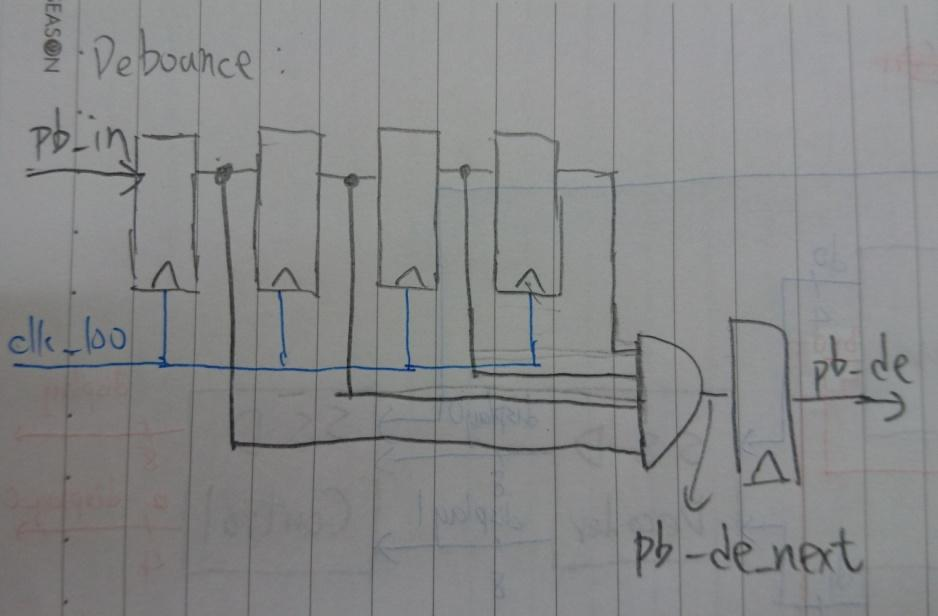 SEASON
Debounce :
pb_in
clk_100
pb-de
pb-de_next